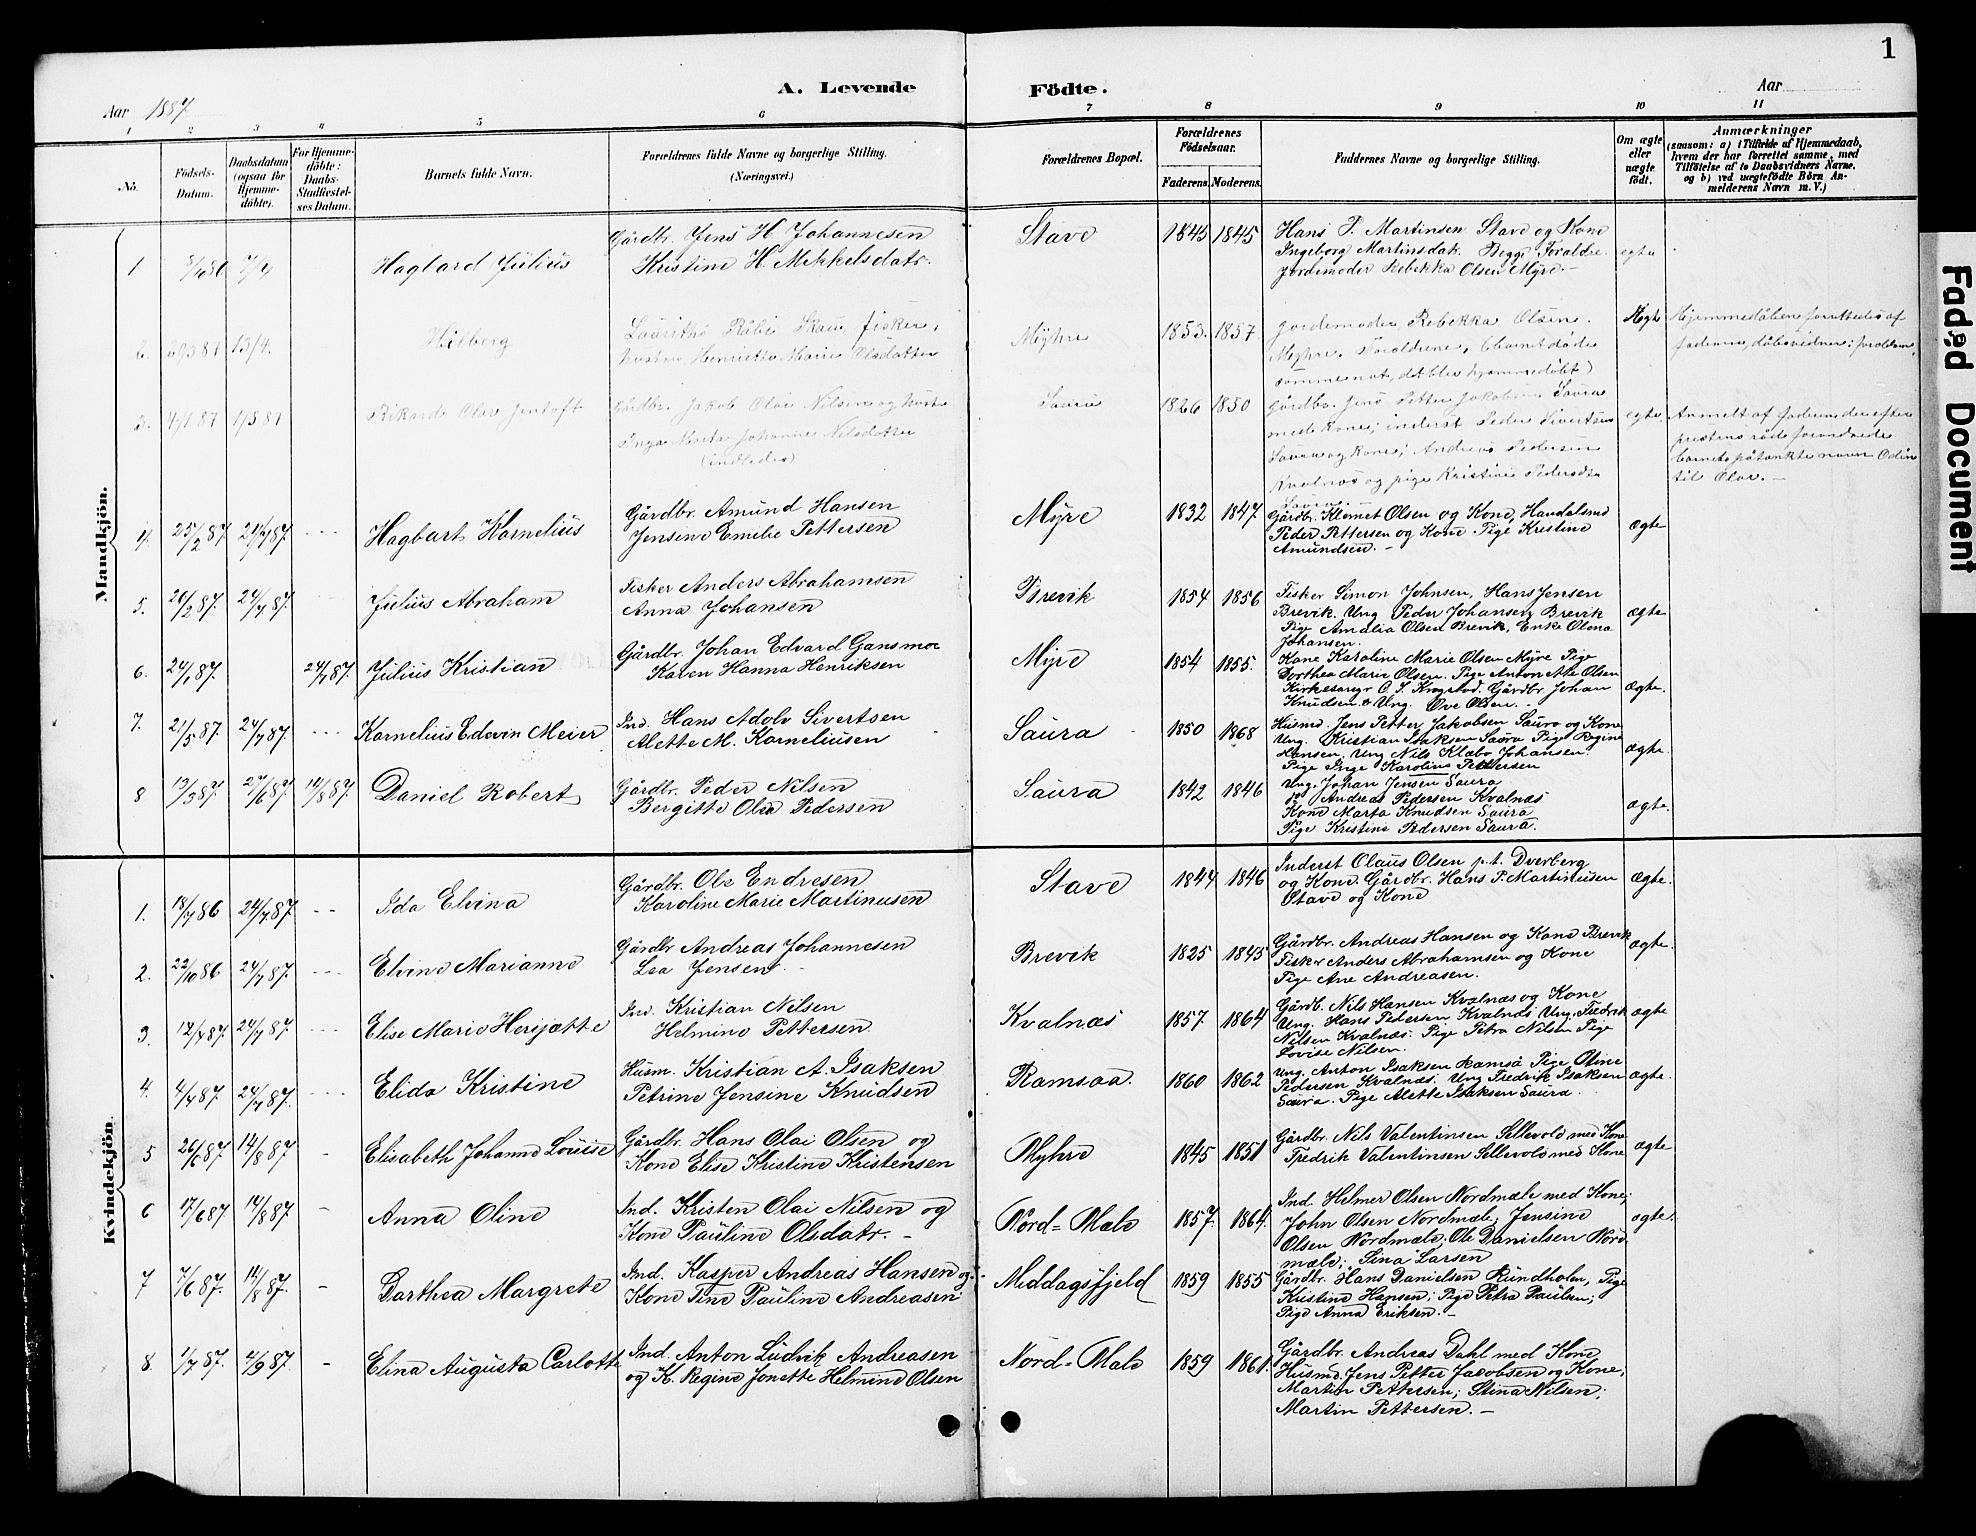 1
A. Levende Födte.
Aar 1887
Aar
1 2 3 4 5 6 7 8 9 10 11
No.
Födsels-Datum.
Daabsdatum (ogsaa for Hjemme-döbte).
For Hjemme-döbte: Daabs-Stadfæstel-ses Datum.
Barnets fulde Navn.
Forældrenes fulde Navne og borgerlige Stilling. (Næringsvei.)
Forældrenes Bopæl.
Forældrenes Födselsaar.
Faderens. Moderens.
Faddernes Navne og borgerlige Stilling.
Om ægte eller uægte födt.
Anmærkninger
(saasom: a) i Tilfælde af Hjemmedaab, hvem der har forrettet samme, med Tilföielse af to Daabsvidners Navne. og b) ved uægtefödte Börn An-melderens Navn m. V.)
Mandkjön.
1 Hagbard Julius
Gårdbr. Jens H. Johannesen
Kristine H. Mikkelsdatr.
Stave 1845 1845
Hans P. Martinsen Stave og Kone
Ingeborg Martinsdatr. Begge Foraldre.
Jordemoder Rebekka Olsen Myre.-
egte
2. 13/4. Hilberg
Skau, fisker,
hustru Henriette Marie Olsdatter
Myhre 1853. 1857.
Jordemoder Rebekka Olsen.
Myhre. Foraldrene, (barnet døde
samme nat, det blev hjemmedøbt)
Ægte
Hjemmedåben forrettedes af
faderen, dåbsvidner: foraldrene.
3. 4/1 87 Rikard Olav Jentoft
Gårdbr. Jakob Olai Nilsen og hustru
Inga Marta Johanne Nilsdatter
(indledes)
Saura 1826 1850
Gårdbr. Jens Petter Jakobsen Saura
med kone; inderst Peder Sivertsen
Saura og kone; Andreas Pedersen
Kvalnæs og pige Kristine Pedersdtr
Saura
egte.
Anmelt af faderen, der efter
prestens råd forandrede
barnets påtænkte navn Odin
til Olav.-
4. 25/2 87. 24/7 87. Hagbart Kornelius
Gårdbr. Amund Hansen
Jensine Emelie Pettersen
Myre 1832 1847.
Gårdbr. Klemet Olsen og Kone, Handelsmd
Peder Pettersen og Kone. Pige Kristine
Amundsen.-
Ægte
5. 26/2 87. 24/7 87. Julius Abraham
Fisker Anders Abrahamsen
Anna Johansen
Brevik 1854 1856
Fisker Simon Johnsen, Hans Jensen
Brevik, Ung. Peder Johansen, Brevik
Pige Amalia Olsen Brevik, Enke Olena
Johansen.
ægte
6. 24/1 87. 24/7 87. Julius Kristian
Gårdbr. Johan Edvard Gansmoe
Karen Hanna Henriksen
Myre 1854 1855.
Kone Karoline Marie Olsen Myre Pige
Dorthea Marie Olsen. Pige Anton Olsen
Johan
Knudsen & Ung. Ove Olsen.
Ægte.
7. 21/5 87. 24/7 87. Kornelius Edevin Meier
Ind. Hans Adolv Sivertsen
Alette M. Korneliusen
Saura 1850 1868
Husmd. Jens Petter Jakobsen Saura og Kone
Ung. Kristian Isaksen Saura Pige Regine
Hansen, Ung Nils Klæbo Johansen.
Pige Inge Karoline Pettersen
ægte.
8 13/3 87. 27/6 87 14/8 87. Daniel Robert
Gårdbr. Peder Nilsen
Bergitte Olea Pedersen
Saura 1842 1846
Ung. Johan Jensen Saura
og Andreas Pedersen Kvalnæs
Kone Marta Knudsen Saura
Pige Kristine Pedersen Saura.
ægte.
Kvindekjön.
1. 18/7 86 24/7 87. Ida Elvina
Gårdbr. Ole Endresen
Karoline Marie Martinusen
Stave 1844 1846
Inderst Claus Olsen p.t. Dverberg
og Kone. Gårdbr. Hans P. Martinusen
Stave og Kone
Ægte.
2. 22/10 86 24/7 87. Elvine Marianne
Gårdbr Andreas Johannesen
Lea Jensen.
Brevik 1825 1845
Gårdbr. Andreas Hansen og Kone Brevik
Fisker Anders Abrahamsen og Kone
Pige Ane Andreasen.
ægte.
3. 24/7 87. Elise Marie Herijette
Ind. Kristian Nilsen
Helmine Pettersen.
Kvalnæs 1857 1864
Gårdb. Nils Hansen Kvalnæs og Kone
Ung. Hans Pedersen Kvalnæs, Ung. Fredrik
Nilsen Kvalnæs. Pige Petra Nilsen Pige
Lovise Nilsen.
Ægte
4. 24/7 87. Elida Kristine
Husm. Kristian A. Isaksen
Petrine Jensine Knudsen
Ramsaa. 1860 1862
Ung. Anton Isaksen Ramså Pige Oline
Pedersen Kvalnæs. Ung Fredrik Isaksen
Saura. Pige Alette Isaksen Saura.
ægte.
5 26/6 87 14/8 87 Elisabeth Johanne Louise
Gårdbr. Hans Olai Olsen og
Kone Elise Kristine Kristensen
Myhre 1845 1851
Gårdbr. Nils Valentinsen Sellevold med Kone
Fredrik Valentinsen Sellevold med Kone
ægte
6 17/6 87 14/8 87 Anna Oline
Ind. Kristen Olai Nilsen og
Kone Pauline Olsdatr.-
Nord-Mele 1857. 1864.
Ind. Helmer Olsen Nordmæle med Kone;
John Olsen Nordmæle; Jensine
Olsen Nordmæle; Ole Danielsen Nord
mæle; Sina Larsen
ægte.
7 7/6 87. 14/8 87. Darthea Margrete
Ind. Kasper Andreas Hansen og
Kone Tine Pauline Andreasen
Middagsfjeld 1859 1855
Gårdbr. Hans Danielsen Rundholen, Pige
Kristine Hansen; Pige Petra Paulsen;
Pige Anna Eriksen.-
8. 1/7 87. 4/9 87. Elina Augusta Carlotte
Ind. Anton Ludvik Andreasen
og K. Regine Jonette Helmine Olsen
Nord-Mele 1859 1861.
Gårdbr. Andreas Dahl med Kone
Husmd. Jens Petter Jacobsen og Kone;
Martin Pettersen; Stina Nilsen;
Martin Pettersen.-
Faded Document